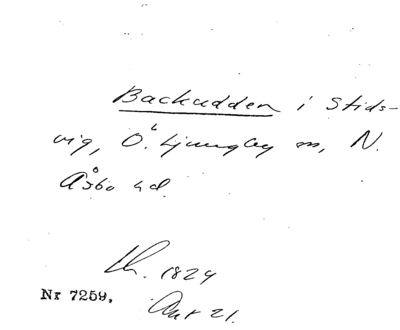 Backudden i Stids-
vig, Ö. Ljungby sn, N.
Åsbo hd.
Lh. 1824
Nr 7259.
Akt 21.